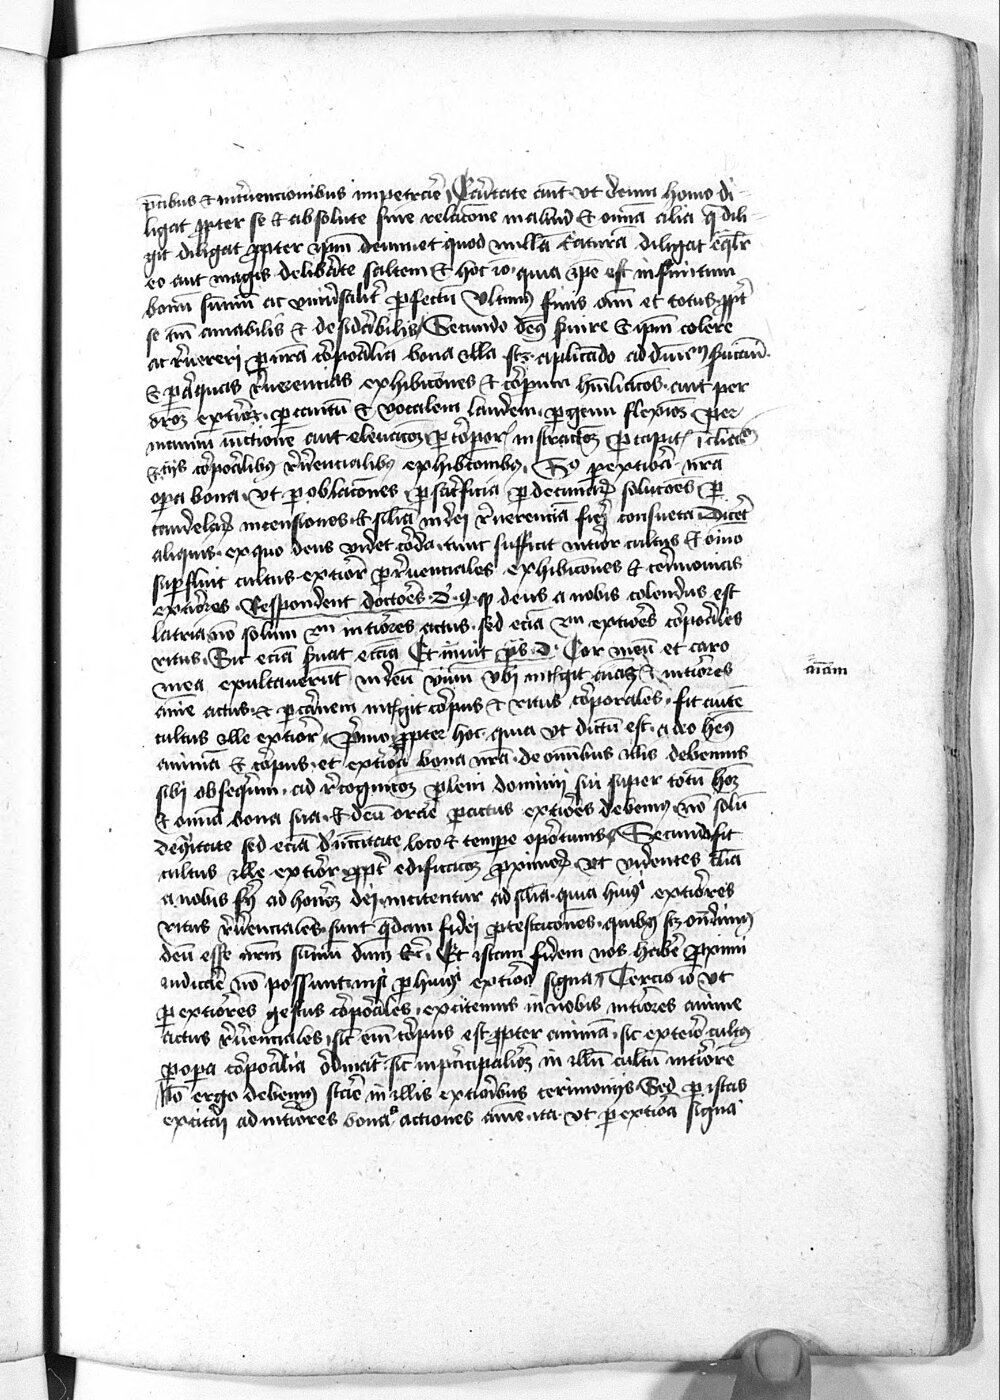 p̄cibus et int̄vencionibus impetrare Caritate aut ut deum homo di-
ligat propter se et absolute sine relacione in aliud et omnia alia que dili-
git diligat propter ipsum deum et quod nullam creaturam diligat equaliter
eo aut magis deliberate saltem et hoc ideo quia ipse est infinitum
bonum summum ac universaliter perfectum ultimus finis omnium et totus propter
se amabilis et desiderabilis Secundo deus servire et ipsum colere
ac revereri per nostra corporalia bona illa scilicet aplicando ad divinum
et per reverencias exhibiciones et corporum humiliaciones aut per
per cantum et vocalem laudem per genu flexiones per
manuum aut elevaciones per
corporalibus reverencialibus exhibicionibus per exteriora nostra
opera bona ut per oblaciones per sacrificia per decimarum soluciones per
candelarum incensiones et similia in dei reverenciam fieri consueta Diceret
aliquis ex quo deus videt corda tunc sufficit interior cultus et omnino
superfluit cultus exterior per reverenciales exhibiciones et cerimonias
exteriores Respondent doctores quod deus a nobis colendus est
latria non solum interiores actus sed eciam exteriores corporales
ritus Sic eciam servat ecclesia Et innuit ps. D. Cor meum et caro
mea exultaverunt in deum vivum ubi per intelligit et interiores
anime actus et per carnem intelligit corpus et ritus corporales fit autem
cultus ille exterior Primo propter hoc quia ut dictum est a deo habemus
animam et corpus et exteriora bona nostra de omnibus illis debemus
sibi obsequium ad recognicionem pleni dominii sui super totum hominem
et omnia bona sua et deum orare per actus exteriores debemus non solum
sed eciam de necessitate loco et tempore oportunis Secundo fit
cultus ille exterior propter edificacionem proximorum ut videntes talia
a nobis fieri ad honorem dei incitentur ad similia quia huiusmodi exteriores
ritus reverenciales sunt quedam fidei protestaciones quibus scilicet ostendimus
deum esse nostrum summum dominum etc. Et istam fidem nos habere proximi
iudicare non possunt nisi per huiusmodi exteriora signa Tercio ideo ut
per exteriores gestus corporales excitemus in nobis interiores anime
actus reverenciales sicut enim corpus est propter animam sic exterior cultus
per opera corporalia ordinatur sicut in principaliorem in illum cultum interiorem
Non ergo debemus stare in illis exterioribus cerimoniis Sed per istas
excitari ad interiores bonas actiones anime ita ut per exteriora signa
animam